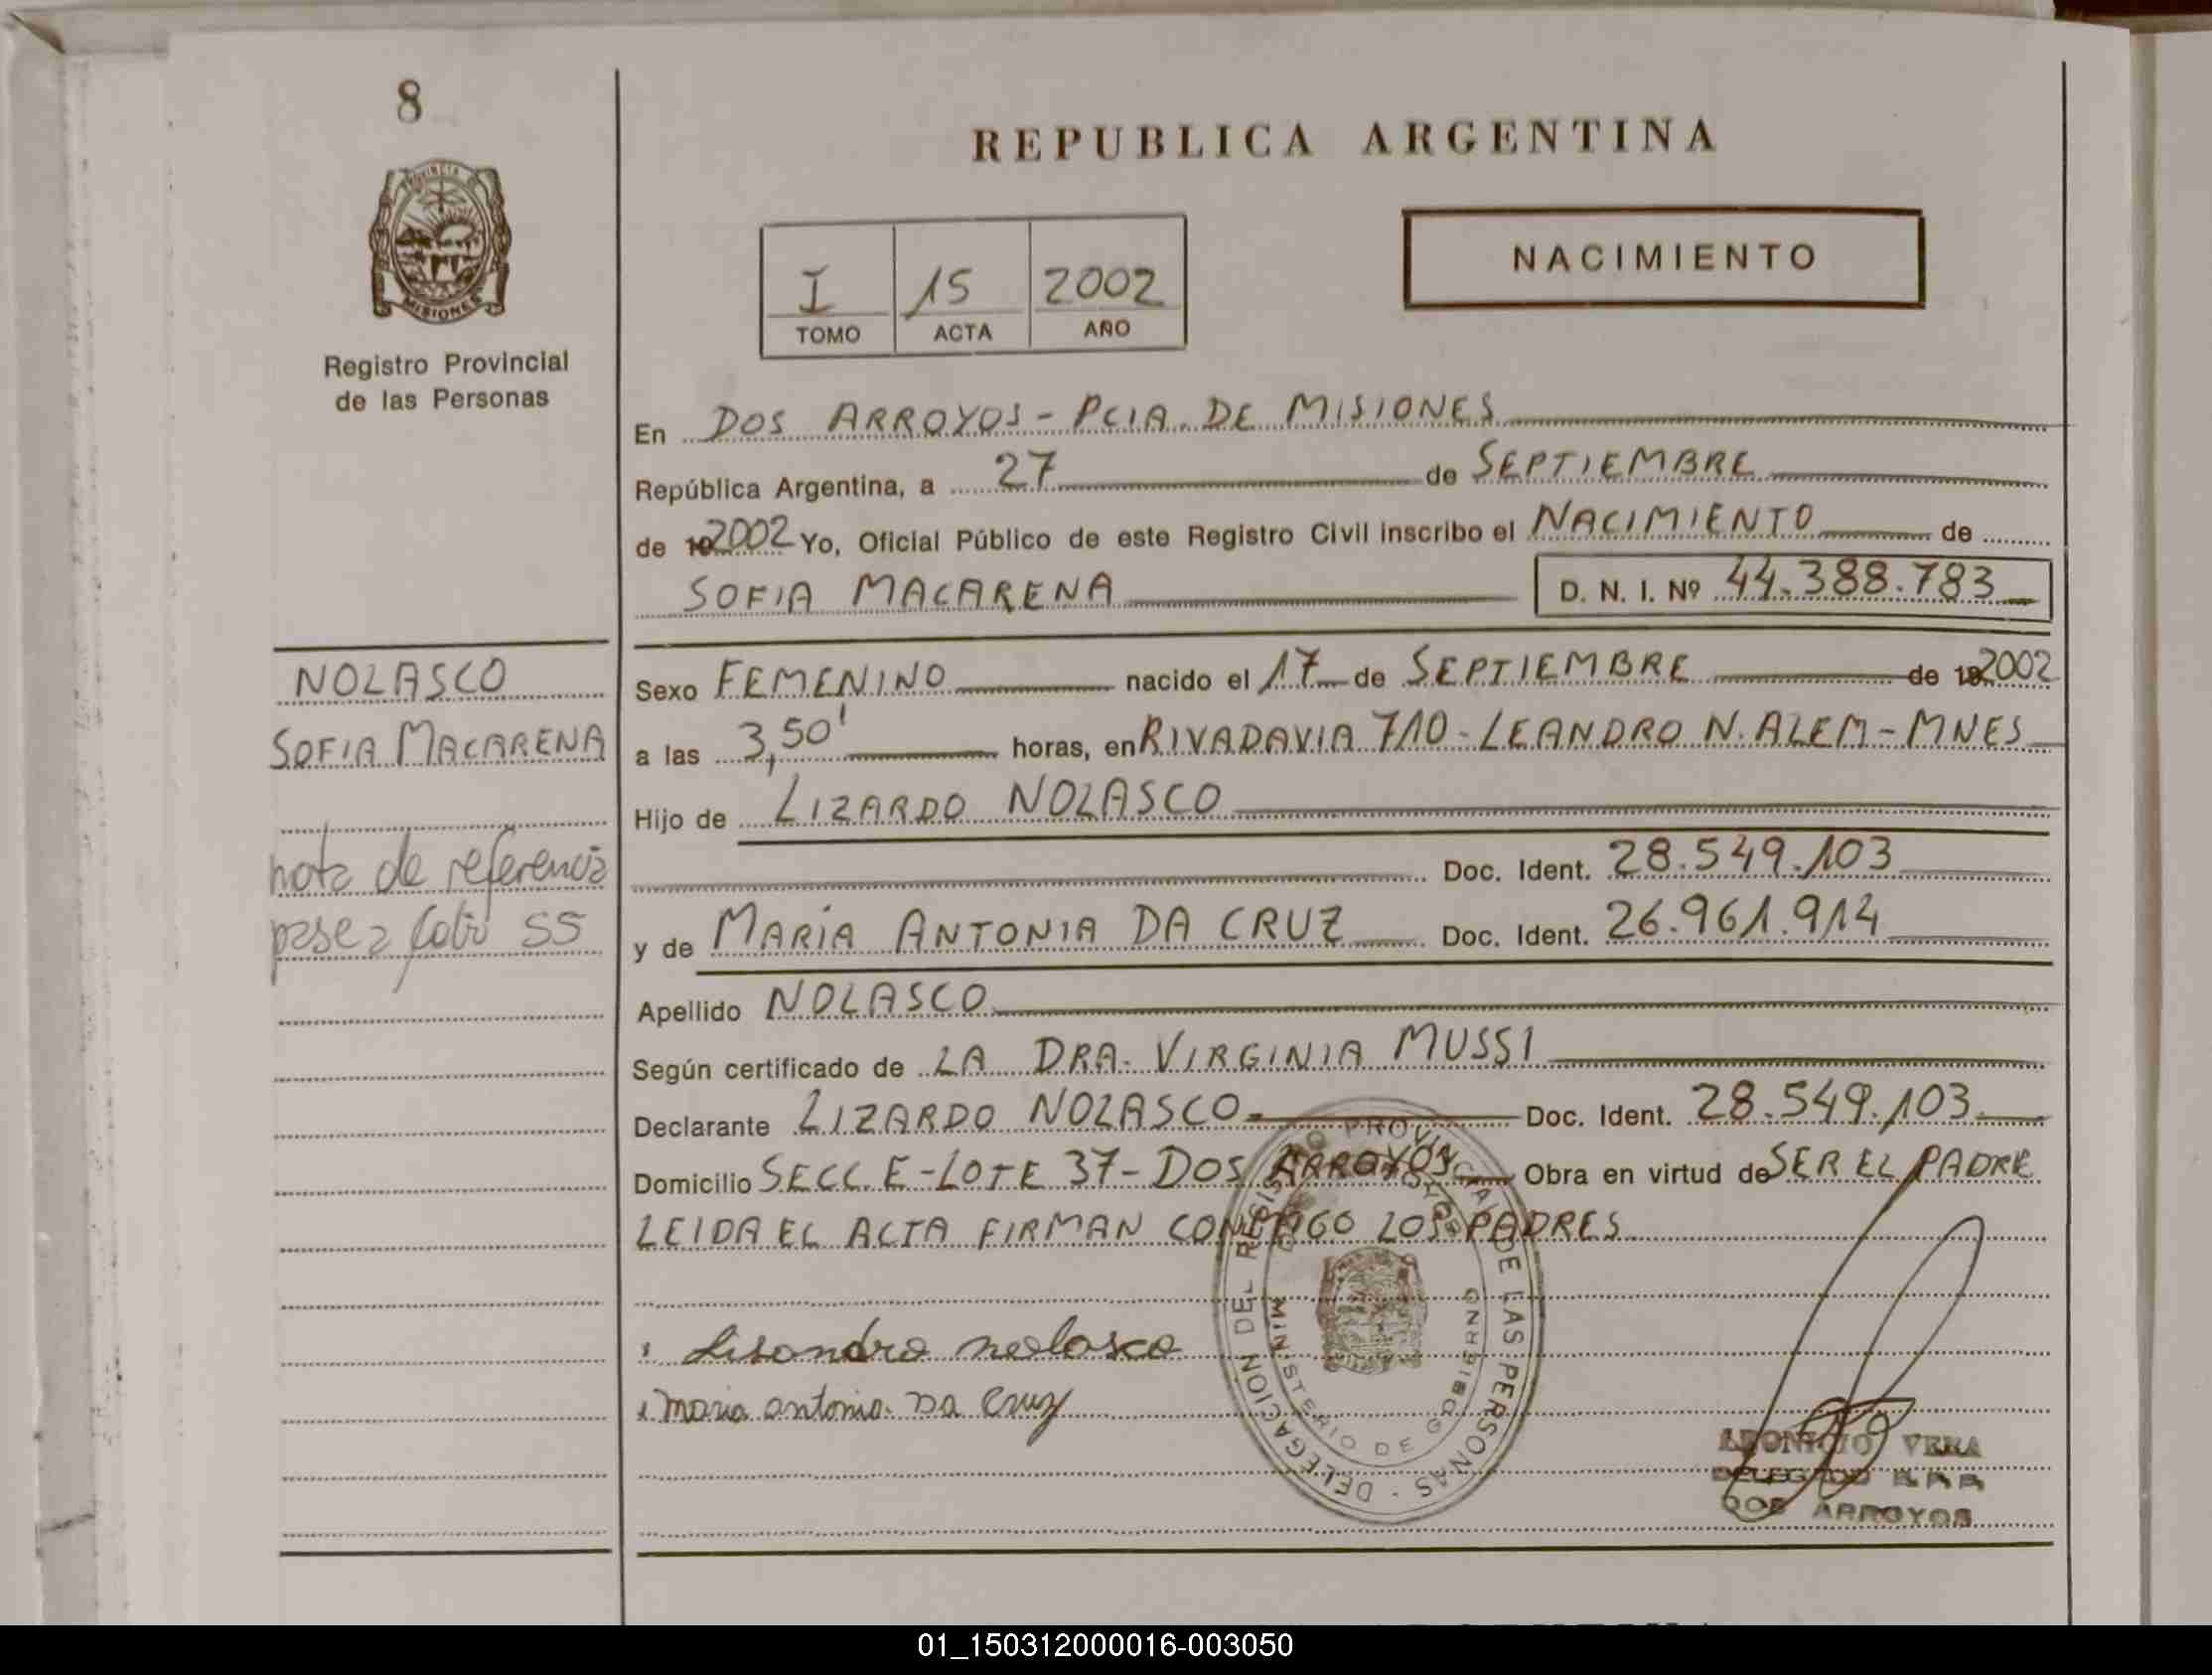 8
REPUBLICA ARGENTINA
PROVINCIA
MISIONES
I 15 2002
TOMO ACTA AÑO
NACIMIENTO
Registro Provincial
de las Personas
En DOS ARROYOS - PCIA. DE MISIONES
República Argentina, a 27 de SEPTIEMBRE
de 19 2002 Yo, Oficial Público de este Registro Civil inscribo el NACIMIENTO de
SOFIA MACARENA D. N. I. Nº 44.388.783
NOLASCO
SOFIA MACARENA
nota de referencia
pase a folio 55
Sexo FEMENINO nacido el 17 de SEPTIEMBRE de 19 2002
a las 3,50' horas, en RIVADAVIA 710 - LEANDRO N. ALEM - MNES
Hijo de LIZARDO NOLASCO
Doc. Ident. 28.549.103
y de MARÍA ANTONIA DA CRUZ Doc. Ident. 26.961.914
Apellido NOLASCO
Según certificado de LA DRA. VIRGINIA MUSSI
Declarante LIZARDO NOLASCO Doc. Ident. 28.549.103
Domicilio SECC. E - LOTE 37 - DOS ARROYOS Obra en virtud de SER EL PADRE
LEIDA EL ACTA FIRMAN CONMIGO LOS PADRES
Lisandro nolasco
maria antonia Da Cruz
DELEGACION DEL REGISTRO PROVINCIAL DE LAS PERSONAS
MINISTERIO DE GOBIERNO
LEONICIO VERA
DELEGADO R.P.P.
DOS ARROYOS
01_150312000016-003050